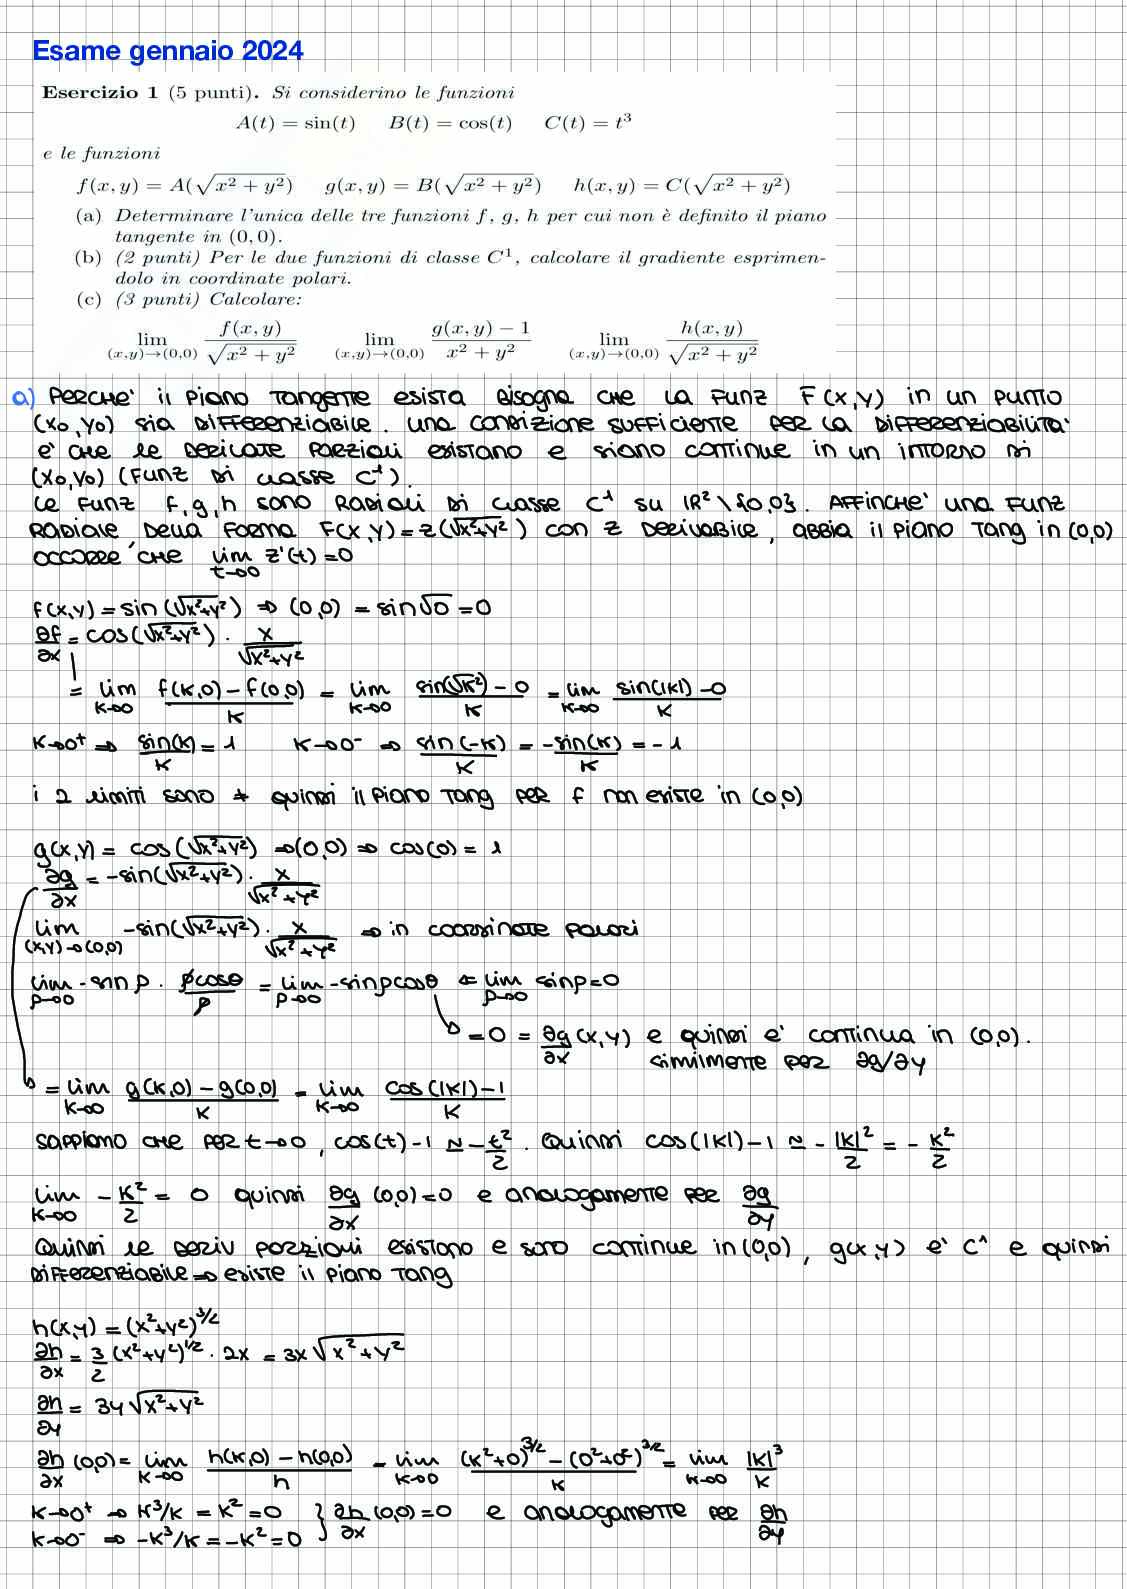 Esame gennaio 2024
Esercizio 1 (5 punti). Si considerino le funzioni
A(t) = sin(t) B(t) = cos(t) C(t) = t³
e le funzioni
f(x, y) = A(√(x² + y²)) g(x, y) = B(√(x² + y²)) h(x, y) = C(√(x² + y²))
(a) Determinare l'unica delle tre funzioni f, g, h per cui non è definito il piano
tangente in (0, 0).
(b) (2 punti) Per le due funzioni di classe C¹, calcolare il gradiente esprimen-
dolo in coordinate polari.
(c) (3 punti) Calcolare:
lim (x,y)→(0,0) f(x, y)/√(x² + y²) lim (x,y)→(0,0) (g(x, y) − 1)/(x² + y²) lim (x,y)→(0,0) h(x, y)/√(x² + y²)
a) PERCHE' il PIANO TANGENTE ESISTA BISOGNA CHE LA FUNZ F(X,Y) in un PUNTO
(X0,Y0) SIA DIFFERENZIABILE. UNA CONDIZIONE SUFFICIENTE PER LA DIFFERENZIABILITA'
E' CHE LE DERIVATE PARZIALI ESISTANO E SIANO CONTINUE IN UN INTORNO DI
(X0,Y0) (FUNZ DI CLASSE C¹).
LE FUNZ f,g,h SONO RADIALI DI CLASSE C¹ SU IR² \ {0,0}. AFFINCHE' UNA FUNZ
RADIALE DELLA FORMA F(X,Y) = z(√x²+y²) CON z DERIVABILE, ABBIA il PIANO TANG in (0,0)
OCCORRE CHE lim t→0 z'(t) = 0
f(x,y) = sin(√x²+y²) ⇒ (0,0) = sin√0 = 0
∂f/∂x = cos(√x²+y²) · x/√x²+y²
= lim k→0 (f(k,0) − f(0,0))/k = lim k→0 (sin(√k²) − 0)/k = lim k→0 (sin(|k|) − 0)/k
k→0⁺ ⇒ sin(k)/k = 1 k→0⁻ ⇒ sin(−k)/k = −sin(k)/k = −1
i 2 limiti sono ≠ quindi il PIANO TANG PER f non esiste in (0,0)
g(x,y) = cos(√x²+y²) ⇒ (0,0) ⇒ cos(0) = 1
∂g/∂x = −sin(√x²+y²) · x/√x²+y²
lim (x,y)→(0,0) −sin(√x²+y²) · x/√x²+y² ⇒ in coordinate polari
lim ρ→0 − sin ρ · ρcosθ/ρ = lim ρ→0 −sinρcosθ ≤ lim ρ→0 sinρ = 0
= 0 = ∂g/∂x (x,y) e quindi e' continua in (0,0).
similmente per ∂g/∂y
= lim k→0 (g(k,0) − g(0,0))/k = lim k→0 (cos(|k|) − 1)/k
sappiamo che per t→0, cos(t) − 1 ≃ −t²/2. Quindi cos(|k|) − 1 ≃ −|k|²/2 = −k²/2
lim k→0 −k²/2 = 0 quindi ∂g/∂x (0,0) = 0 e analogamente per ∂g/∂y
Quindi le deriv parziali esistono e sono continue in (0,0), g(x,y) e' C¹ e quindi
differenziabile ⇒ esiste il piano tang
h(x,y) = (x²+y²)^3/2
∂h/∂x = 3/2 (x²+y²)^1/2 · 2x = 3x√x²+y²
∂h/∂y = 3y√x²+y²
∂h/∂x (0,0) = lim k→0 (h(k,0) − h(0,0))/h = lim k→0 ((k²+0)^3/2 − (0²+0²)^3/2)/k = lim k→0 |k|³/k
k→0⁺ ⇒ k³/k = k² = 0 } ∂h/∂x (0,0) = 0 e analogamente per ∂h/∂y
k→0⁻ ⇒ −k³/k = −k² = 0